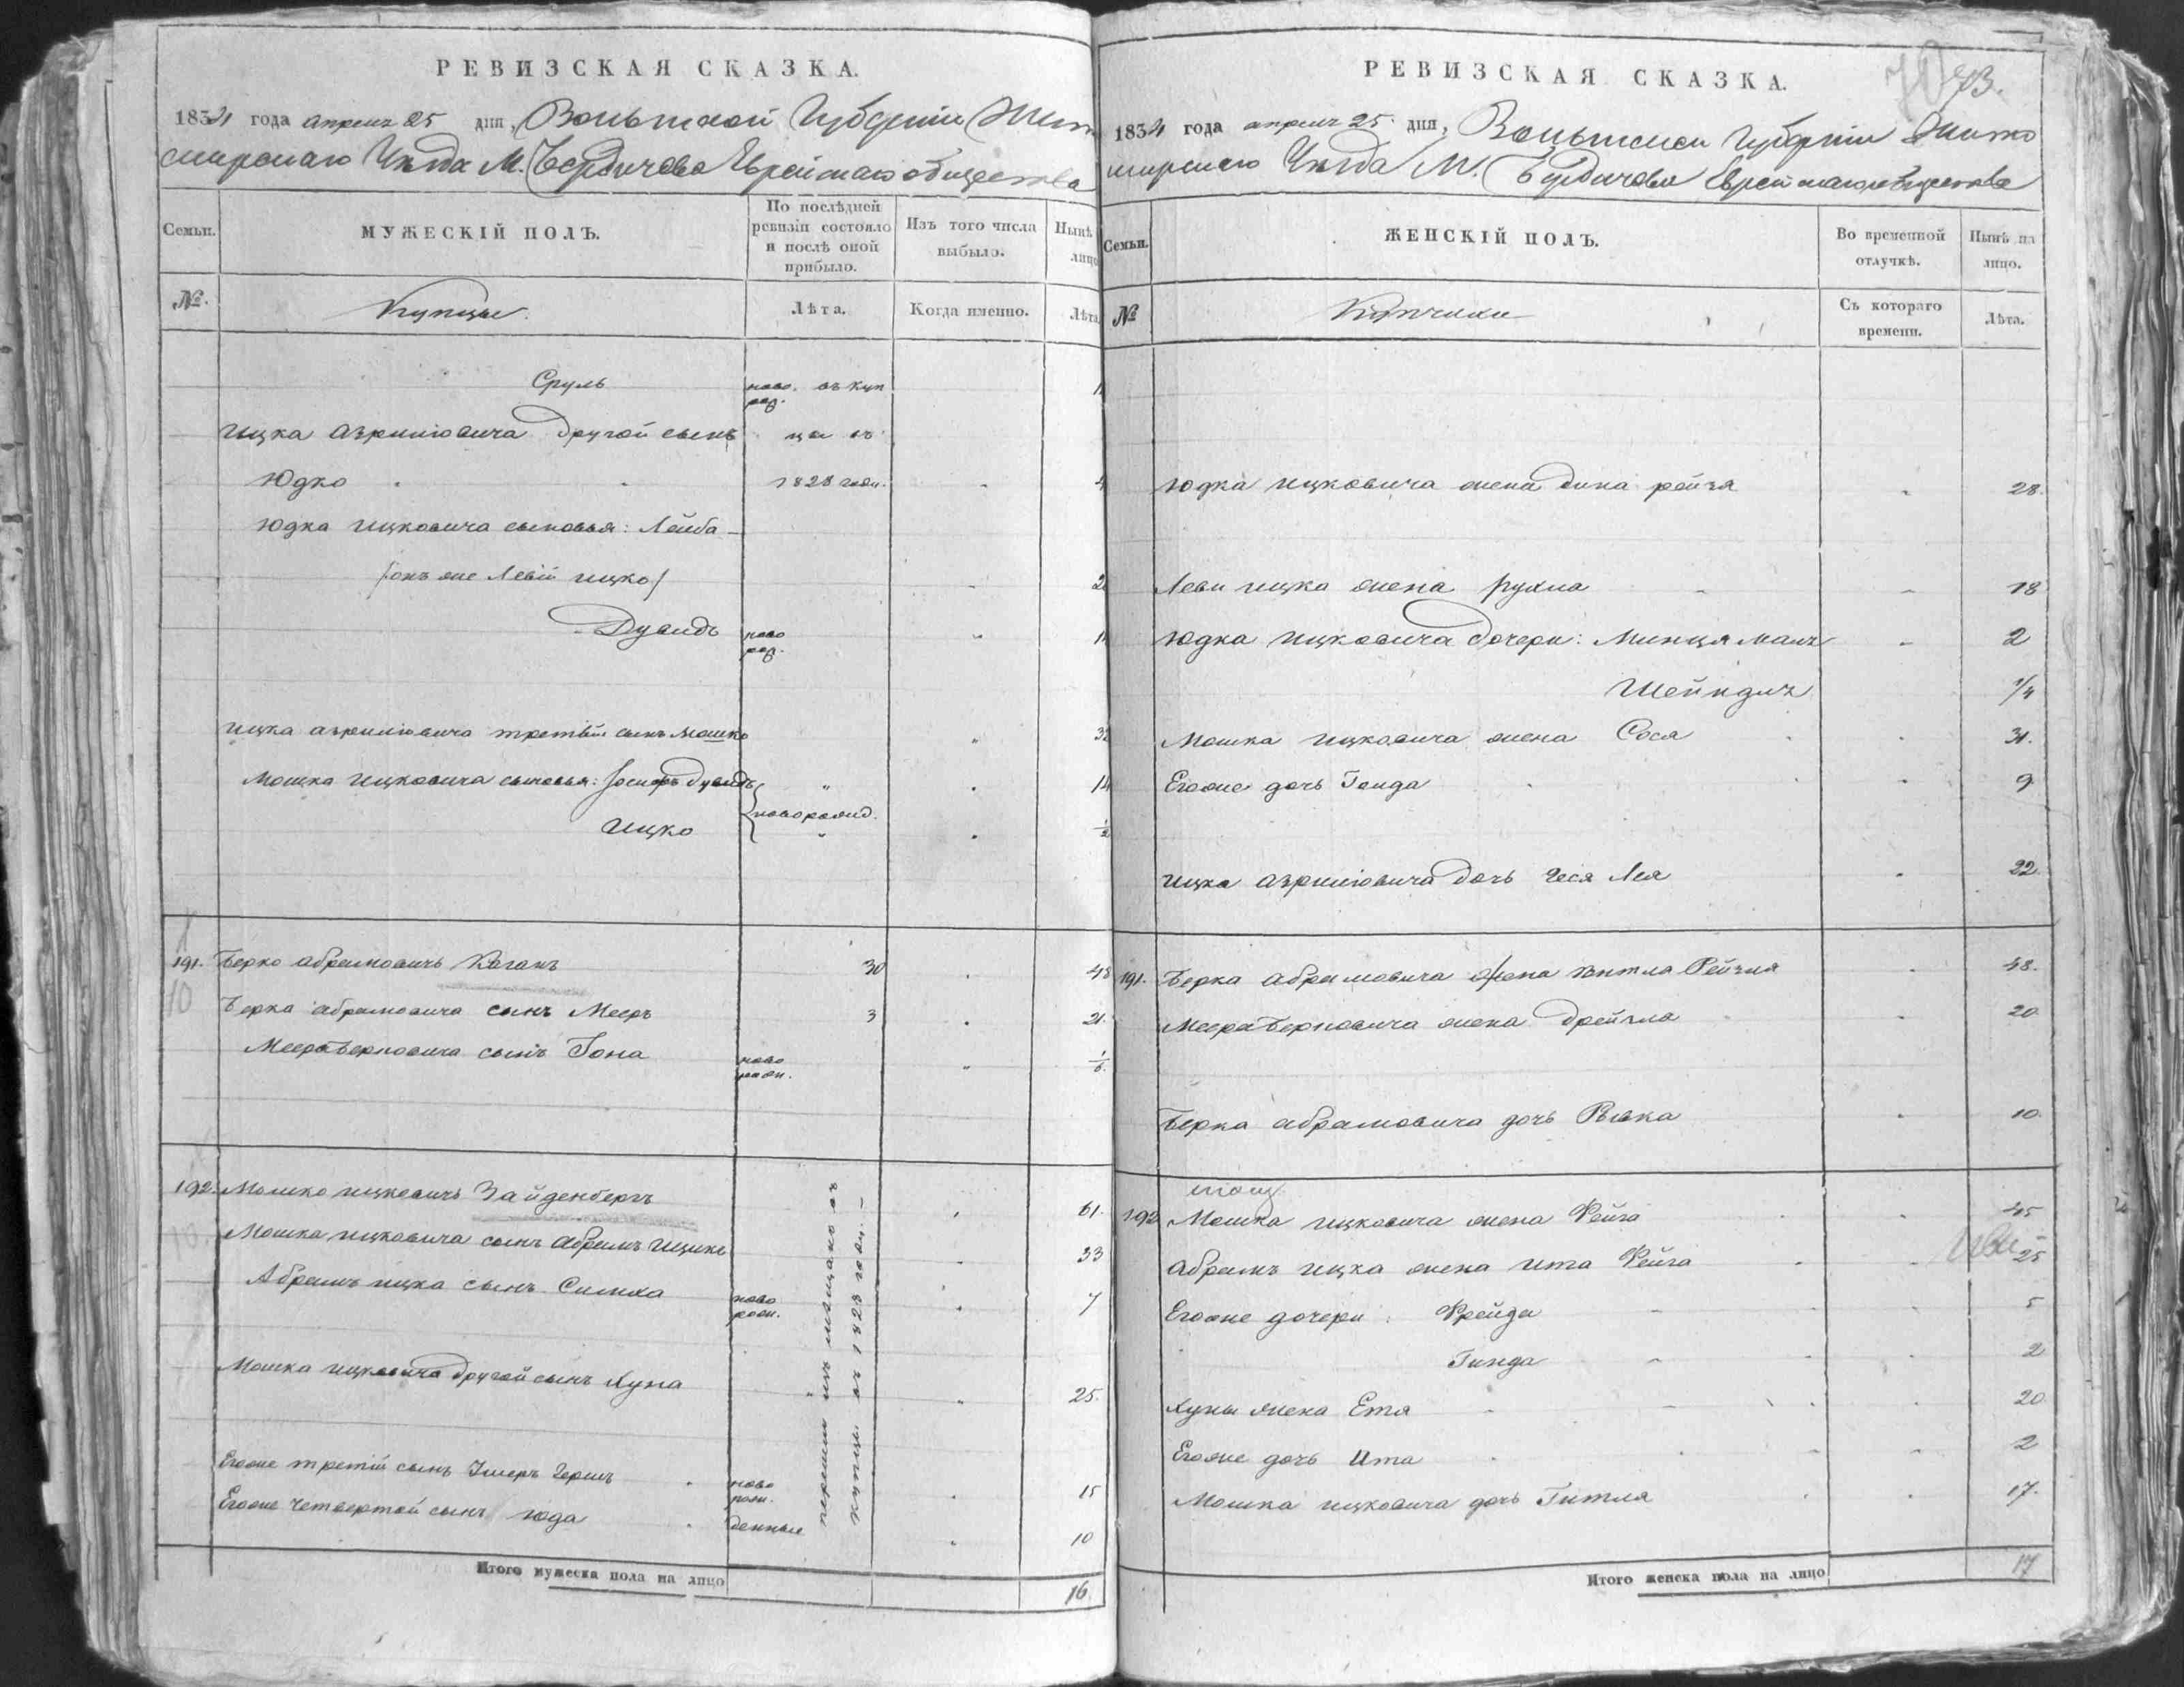 РЕВИЗСКАЯ СКАЗКА.
1834 года апреля 25 дня, Волынской Губерніи Жито
мирскаго Уѣзда М. Бердичева Еврейскаго общества
Семьи.
МУЖЕСКІЙ ПОЛЪ.
По послѣдней ревизіи состояло и послѣ оной прибыло.
Изъ того числа выбыло.
Нынѣ на лицо
№.
Купцы.
Лѣта.
Когда именно.
Лѣта
Сруль ново. рож. въ куп
Ицка Азриліовича другой сынъ цы въ
Юдко 1828 году.
Юдка Ицковича сыновья: Лейба
/онъ же Левій Ицко/
Дувидъ ново рож.
Ицка Азриліовича третій сынъ Мошко 32
Мошка Ицковича сыновья: Іосифъ Дувидъ 14
Ицко новорожд. 1/2
191. Берко Абрамовичъ Коганъ 30 48
10
Берка Абрамовича сынъ Мееръ 3 21.
Меера Берковича сынъ Іона ново рожд. 1/6.
192. Мошко Ицковичъ Зайденбергъ 61.
Мошка Ицковича сынъ Абрамъ Ицико 33
Абрамъ Ицка сынъ Симха ново рожд. 7
Мошка Ицковича другой сынъ Хуна 25.
Егоже третій сынъ Шмеръ Герш ново рож. 15
Егоже четвертой сынъ Юда денные 10
перешли изъ мещанъ въ
купцы въ 1828 году. —
Итого мужеска пола на лицо 16
РЕВИЗСКАЯ СКАЗКА.
70 73.
1834 года апреля 25 дня, Волынской Губерніи Жито
мирскаго Уѣзда М. Бердичева Еврейскаго общества
Семьи.
ЖЕНСКІЙ ПОЛЪ.
Во временной отлучкѣ.
Нынѣ на лицо.
№
Купчихи
Съ котораго времени.
Лѣта.
Юдка Ицковича жена Дина Рейзя 28.
Леви Ицка жена Рухля 18
Юдка Ицковича дочери: Минця Малъ 2
Шейндля 1/4
Мошка Ицковича жена Сося 31.
Егоже дочь Генда 9
Ицка Азриліовича дочь Чеся Лея 22.
191. Берка Абрамовича жена Ентла Рейзля 48.
Меера Берковича жена Дрейзла 20
Берка Абрамовича дочь Ривка 10.
192 Мошка Ицковича жена Фейга 45
Абрамъ Ицка жена Ита Фейга 25
Егоже дочери: Фрейда 5
Гинда 2
Хуны жена Етя 20
Егоже дочь Ита 2
Мошка Ицковича дочь Гитля 17.
Итого женска пола на лицо 17